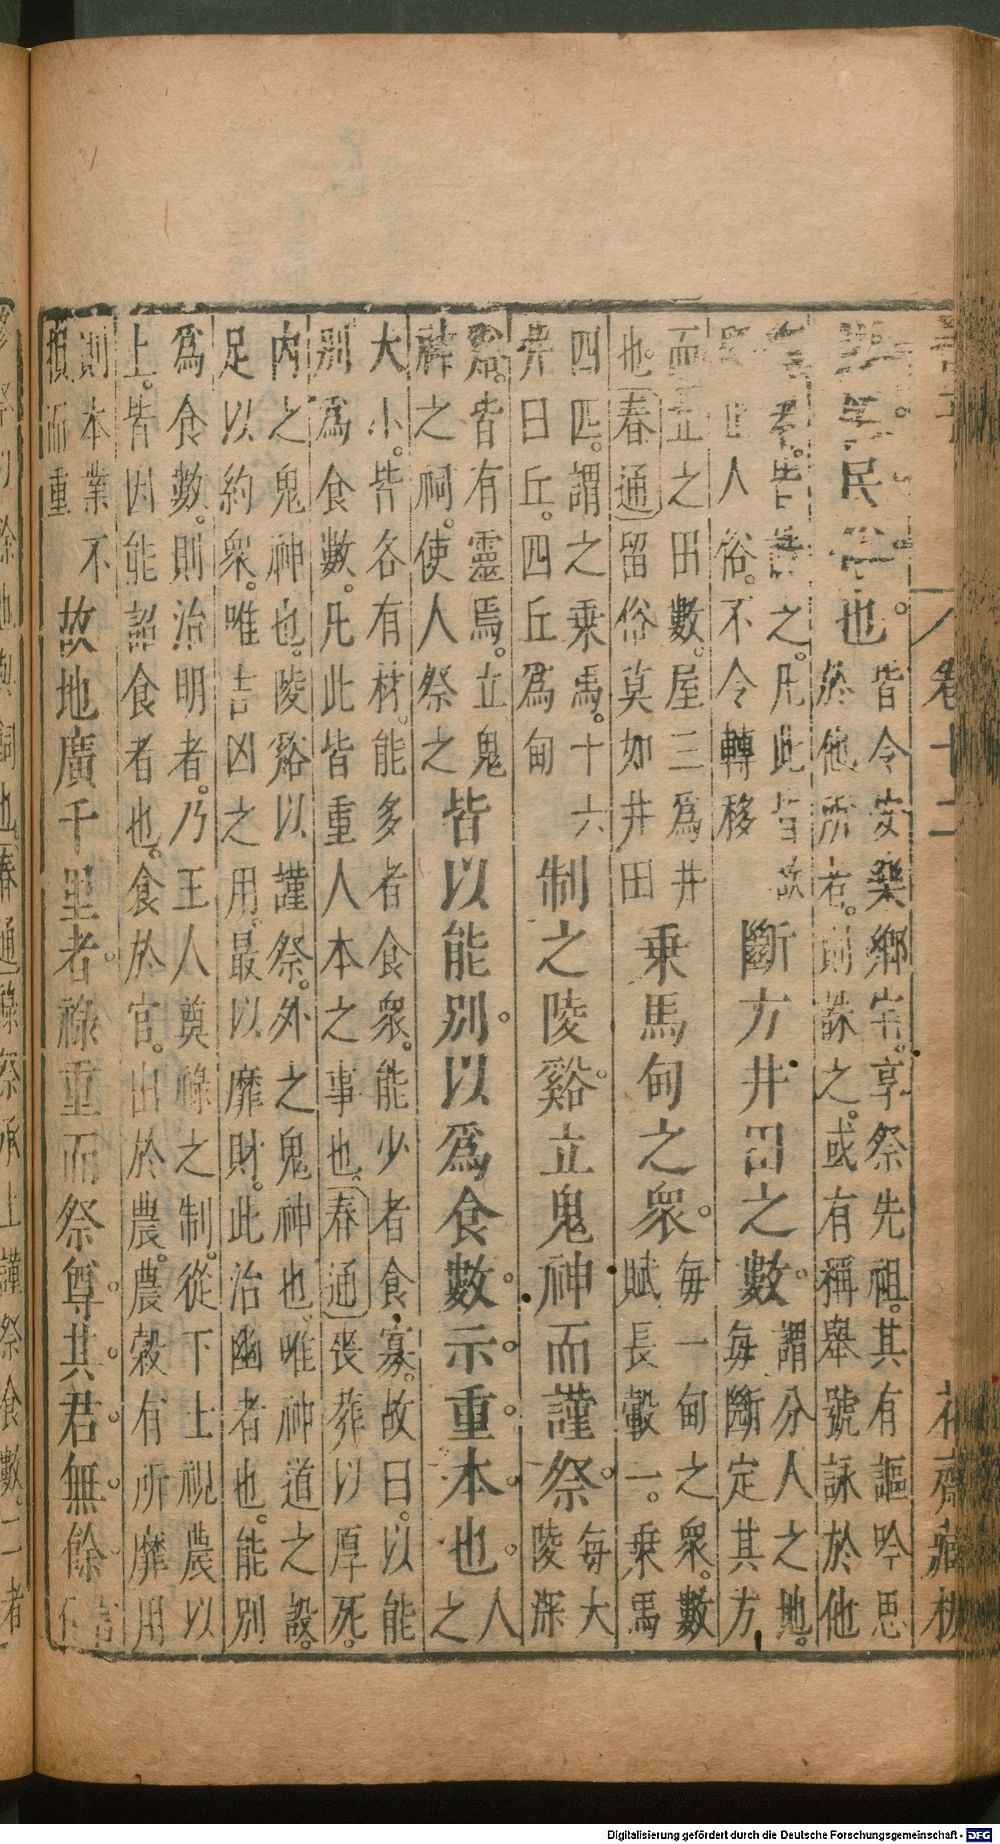 卷十二
花齋藏板
民 也皆令安樂鄉宅享祭先祖其有謳吟思
於他所者則誅之或有稱舉號詠於他
之凡此皆故
人俗不令轉移
斷方井田之數謂分人之地
每斷定其方
而立之田數屋三爲井
也春通留俗莫如井田
乘馬甸之衆每一甸之衆數
賦長轂一乘馬
四匹謂之乘馬十六
井曰丘四丘爲甸
制之陵谿立鬼神而謹祭每大
陵深
谿皆有靈焉立鬼
神之祠使人祭之
皆以能別以爲食數示重本也人
之
大小皆各有材能多者食衆能少者食寡故曰以能
別爲食數凡此皆重人本之事也春通喪葬以厚死
內之鬼神也陵谿以謹祭外之鬼神也唯神道之設
足以約衆唯吉凶之用最以靡財此治幽者也能別
爲食數則治明者乃王人奠祿之制從下士視農以
上皆因能詔食者也食於官出於農農穀有所靡用
則本業不
損而重
故地廣千里者祿重而祭尊其君無餘
修祭則餘也與詞也春通祿祭承上謹祭食數二者
Digitalisierung gefördert durch die Deutsche Forschungsgemeinschaft - DFG